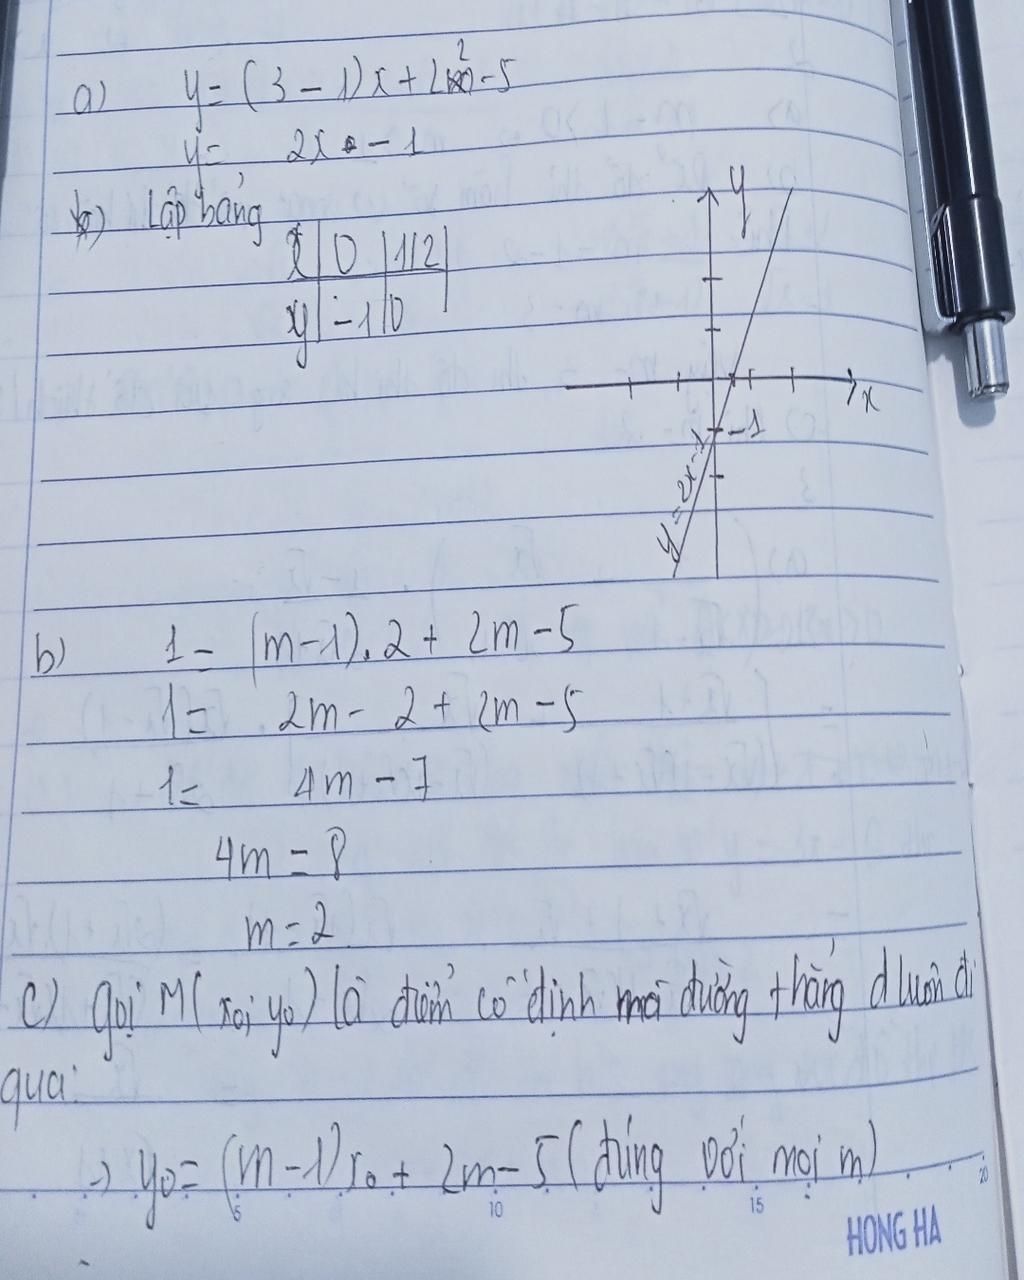 a) y = (3 - 1)x + 2 - 5
y = 2x - 1
b) Lập bảng
x | 0 | 1/2
y | -1 | 0
y
x
-1
y = 2x - 1
b) 1 = (m-1).2 + 2m - 5
1 = 2m - 2 + 2m - 5
1 = 4m - 7
4m = 8
m = 2
c) gọi M(x₀; y₀) là điểm cố định mà đường thẳng d luôn đi
qua:
=> y₀ = (m-1)x₀ + 2m - 5 (đúng với mọi m)
5 10 15 20
HONG HA